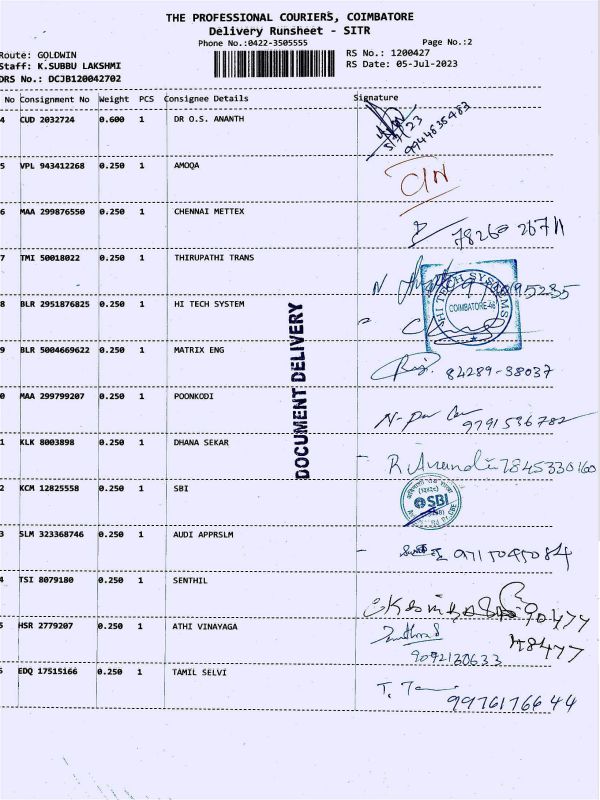 THE PROFESSIONAL COURIERS, COIMBATORE
Delivery Runsheet - SITR
Phone No.:0422-3505555 Page No.:2
Route: GOLDWIN RS No.: 1200427
Staff: K.SUBBU LAKSHMI RS Date: 05-Jul-2023
DRS No.: DCJB120042702
No Consignment No Weight PCS Consignee Details Signature
4 CUD 2032724 0.600 1 DR O.S. ANANTH
5/7/23
9944635483
5 VPL 943412268 0.250 1 AMOQA
6 MAA 299876550 0.250 1 CHENNAI METTEX
7 TMI 50018022 0.250 1 THIRUPATHI TRANS
8 BLR 2951876825 0.250 1 HI TECH SYSTEM
HI TECH SYSTEMS
COIMBATORE
9 BLR 5004669622 0.250 1 MATRIX ENG 84289-38037
0 MAA 299799207 0.250 1 POONKODI 9791536782
1 KLK 8003898 0.250 1 DHANA SEKAR 7845330160
2 KCM 12825558 0.250 1 SBI
SBI
3 SLM 323368746 0.250 1 AUDI APPRSLM 9715095084
4 TSI 8079180 0.250 1 SENTHIL 90477
48477
5 HSR 2779207 0.250 1 ATHI VINAYAGA
9092130633
6 EDQ 17515166 0.250 1 TAMIL SELVI 9976176644
DOCUMENT DELIVERY